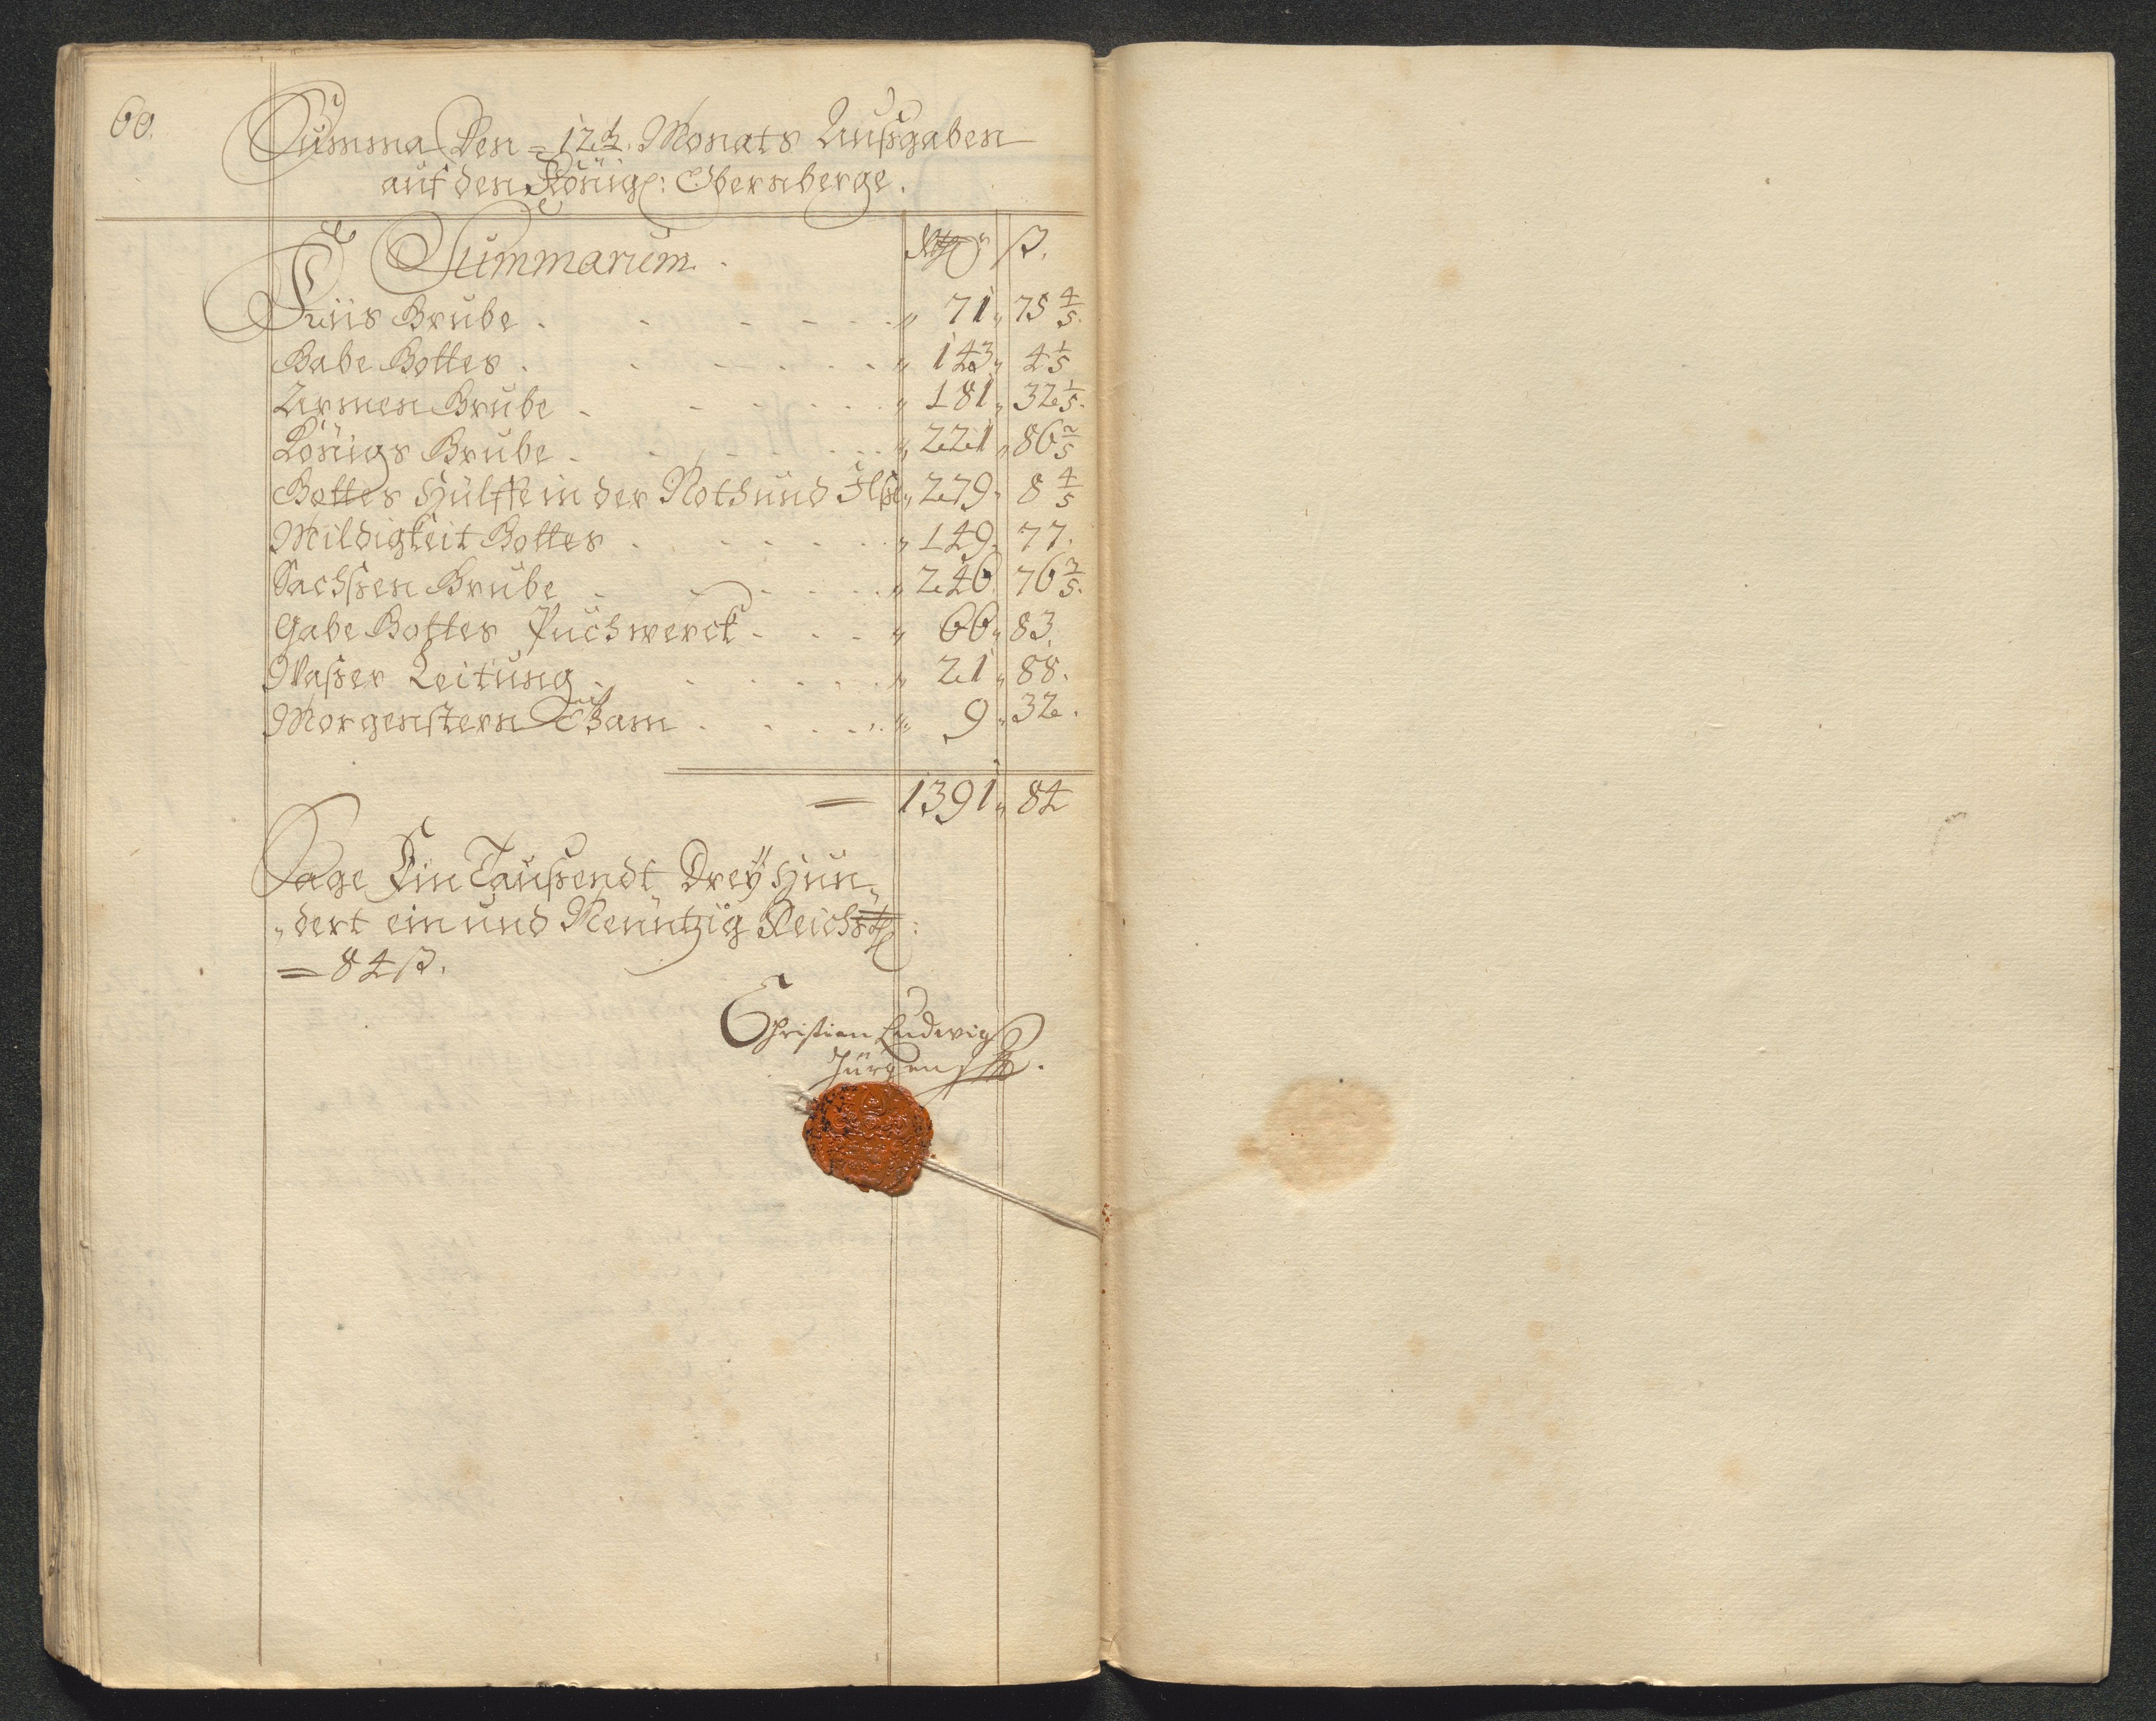 60.
Summa Den = 12t. Monats Außgaben
auf den Königl: Obernberge.
Summarium.
Rthlr ß.
Grube . . . . " 71 " 75 4/5.
Gabe Gottes . . . . " 143 " 4 1/5
Armen Grube . . . . " 181 " 32 1/5.
Königs Grube . . . . " 221 " 86 2/5
Gottes Hülffe in der Noth und " 279 " 8 4/5
Mildigkeit Gottes . . . . " 149 " 77.
Sachssen Grube . . . . " 246 76 3/5.
Gabe Gottes Puchwerck . . . " 66 " 83.
Waßer Leitung . . . . " 21 " 88.
Morgenstern Tham . . . . " 9 " 32.
= 1391 " 84
Sage Ein Taußendt Dreÿ Hun„
„dert ein und Neuntzig Reichsthl:
= 84 ß.
Christian Ludewig
Jürgens